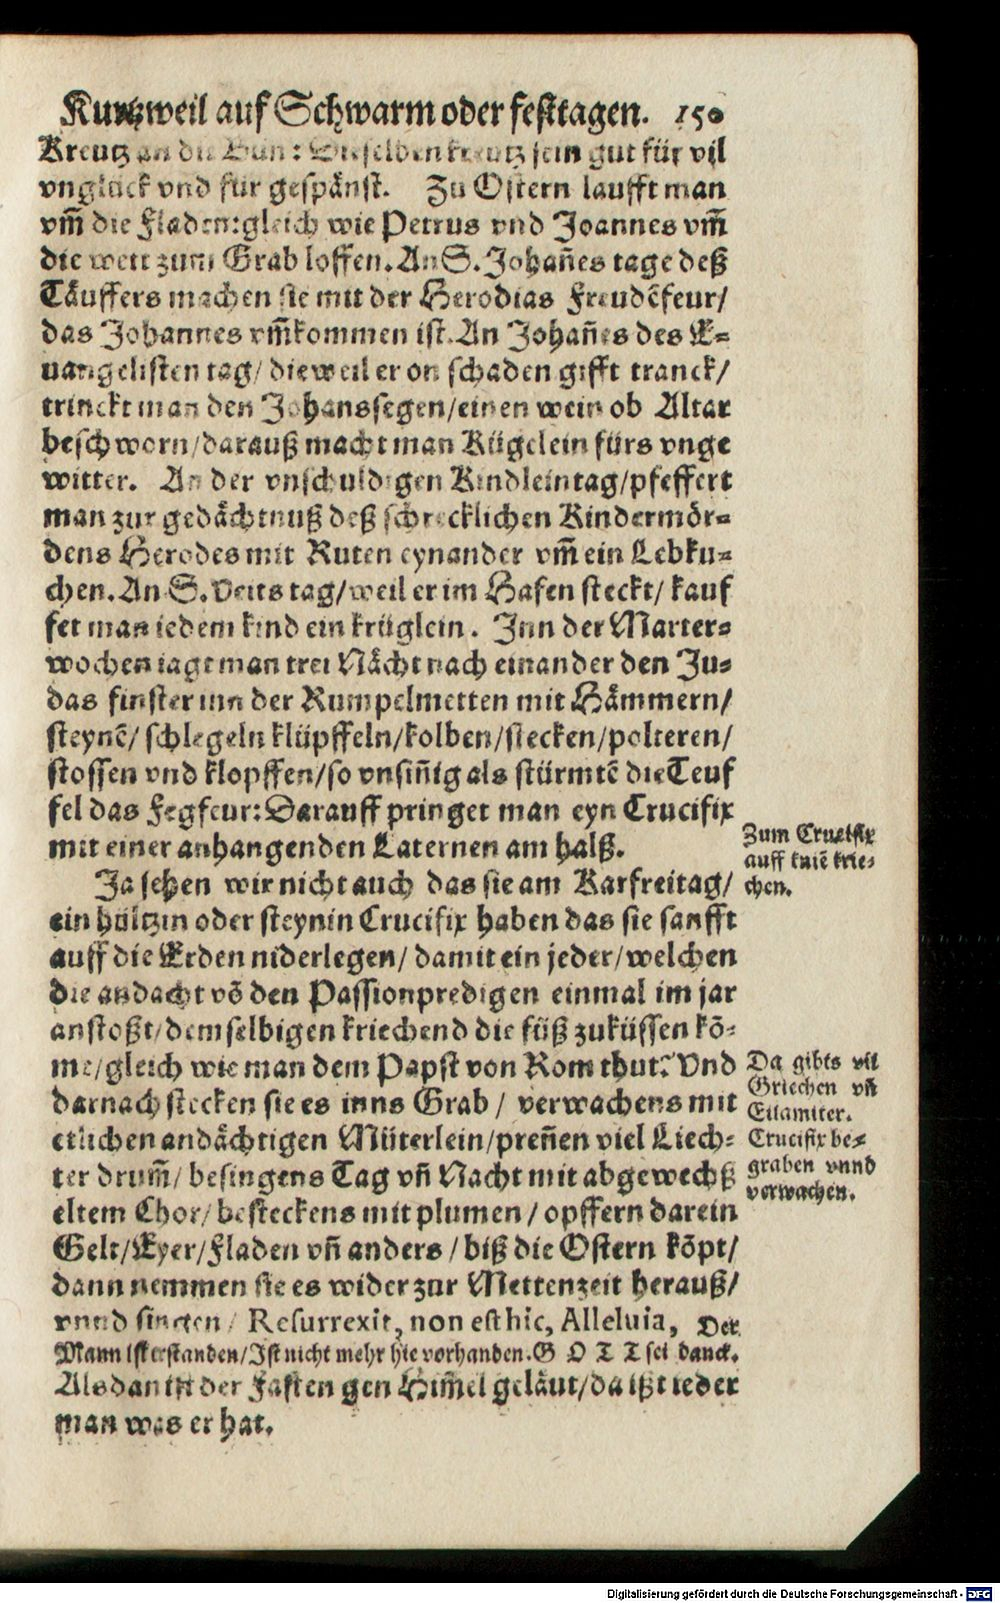 Kurtzweil auf Schwarm oder festtagen. 150
Kreutz an die Bün: Dieselben kreutz sein gut für vil
vnglück vnd für gespänst. Zu Ostern laufft man
vm̃ die Fladen: gleich wie Petrus vnd Joannes vm̃
die wett zum Grab loffen. An S. Johañes tage deß
Täuffers machen sie mit der Herodias Freudẽfeur/
das Johannes vm̃kommen ist. An Johañes des E⸗
uangelisten tag/ dieweil er on schaden gifft tranck/
trinckt man den Johanssegen/ einen wein ob Altar
beschworn/ darauß macht man Kügelein fürs vnge
witter. An der vnschuldigen Kindlein tag/ pfeffert
man zur gedächtnuß deß schrecklichen Kindermör⸗
dens Herodes mit Ruten eynander vm̃ ein Lebku⸗
chen. An S. Veits tag/ weil er im Hafen steckt/ kauf
fet man iedem kind ein krüglein. Inn der Marter⸗
wochen iagt man trei Nächt nach einander den Ju⸗
das finster inn der Rumpelmetten mit Hämmern/
steynẽ/ schlegeln klüpffeln/ kolben/ stecken/ polteren/
stossen vnd klopffen/ so vnsiñig als stürmtẽ die Teuf
fel das Fegfeur: Darauff pringet man eyn Crucifix
mit einer anhangenden Laternen am halß.
Zum Crucifix
auff kniẽ krie⸗
chen.
Ja sehen wir nicht auch das sie am Karfreitag/
ein hültzin oder steynin Crucifix haben das sie sanfft
auff die Erden niderlegen/ damit ein jeder/ welchen
die andacht võ den Passionpredigen einmal im jar
anstoßt/ demselbigen kriechend die füß zuküssen kõ⸗
me/ gleich wie man dem Papst von Rom thut? Vnd
darnach stecken sie es inns Grab/ verwachens mit
etlichen andächtigen Müterlein/ preñen viel Liech⸗
ter drum̃/ besingens Tag vñ Nacht mit abgewechß
eltem Chor/ besteckens mit plumen/ opffern darein
Gelt/ Eyer/ Fladen vñ anders/ biß die Ostern kõpt/
dann nemmen sie es wider zur Mettenzeit herauß/
vnnd singen/ Resurrexit, non est hic, Alleluia, Der
Mann ist erstanden/ Ist nicht mehr hie vorhanden. G O T T sei danck.
Als dan ist der Fasten gen Him̃el geläut/ da ißt ieder
man was er hat.
Da gibts vil
Griechen vñ
Eilamiter.
Crucifix be⸗
graben vnnd
verwachen.
Digitalisierung gefördert durch die Deutsche Forschungsgemeinschaft - DFG